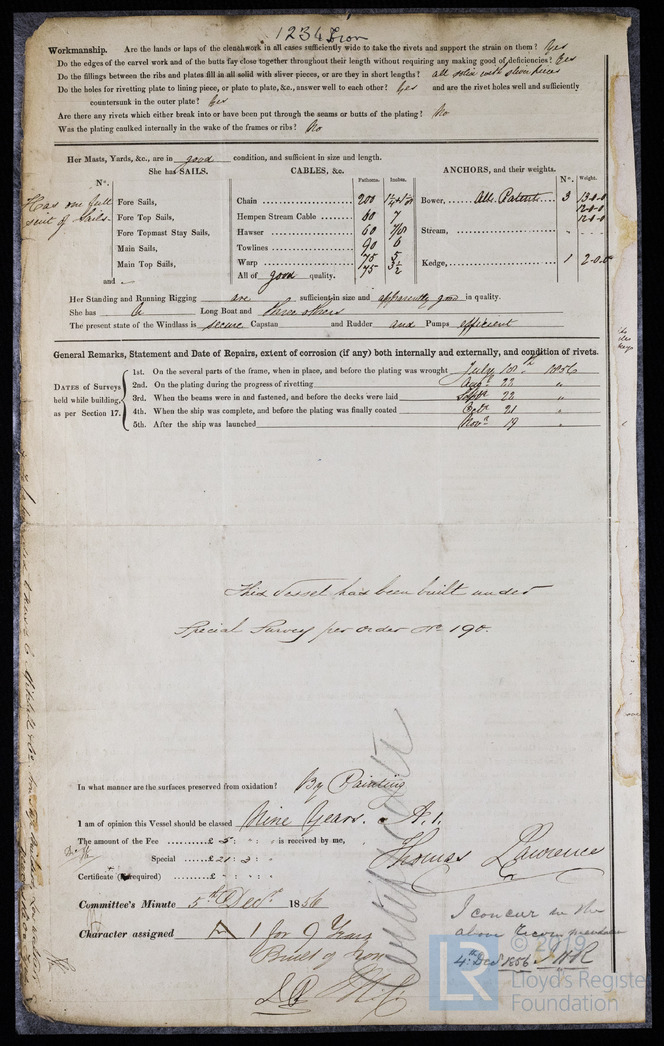 1234 Iron
Workmanship. Are the lands or laps of the clenchwork in all cases sufficiently wide to take the rivets and support the strain on them? Yes
Do the edges of the carvel work and of the butts fay close together throughout their length without requiring any making good of deficiencies? Yes
Do the fillings between the ribs and plates fill in all solid with sliver pieces, or are they in short lengths? all solid with sliver pieces
Do the holes for rivetting plate to lining piece, or plate to plate, &c., answer well to each other? Yes and are the rivet holes well and sufficiently
countersunk in the outer plate? Yes
Are there any rivets which either break into or have been put through the seams or butts of the plating? No
Was the plating caulked internally in the wake of the frames or ribs? No
Her Masts, Yards, &c., are in good condition, and sufficient in size and length.
She has SAILS. CABLES, &c. Fathoms. Inches. ANCHORS, and their weights. Nº. Weight.
Nº.
Has one full suit of Sails.
Fore Sails,
Fore Top Sails,
Fore Topmast Stay Sails,
Main Sails,
Main Top Sails,
and
Chain 200
Hempen Stream Cable 60 7
Hawser 60
Towlines 90 6
Warp 75 5
75 3½
All of good quality.
Bower, All Patent 3 13.0.0
12.0.0
12.0.0
Stream,
Kedge, 1 2.0.0
Her Standing and Running Rigging are sufficient in size and apparently good in quality.
She has a Long Boat and three others
The present state of the Windlass is secure Capstan and Rudder and Pumps efficient
General Remarks, Statement and Date of Repairs, extent of corrosion (if any) both internally and externally, and condition of rivets.
DATES of Surveys held while building, as per Section 17.
1st. On the several parts of the frame, when in place, and before the plating was wrought July 18th 1856
2nd. On the plating during the progress of rivetting Augt 22 "
3rd. When the beams were in and fastened, and before the decks were laid Septr 22 "
4th. When the ship was complete, and before the plating was finally coated Octr 21 "
5th. After the ship was launched Novr 19 "
This Vessel has been built under
Special Survey per order No 190.
In what manner are the surfaces preserved from oxidation? By Painting
I am of opinion this Vessel should be classed Nine Years. A.1.
The amount of the Fee £ 5 : " : " is received by me,
Special £ 21 : 3 : "
Thomas Lawrence
Certificate (if required) £ " : " : "
Committee's Minute 5th Decr 1856
Character assigned A 1 for 9 Years
Built of Iron
Certificate
I concur in the
above Recommendation
4th Decr 1856
© 2019
LR
Lloyd's Register
Foundation